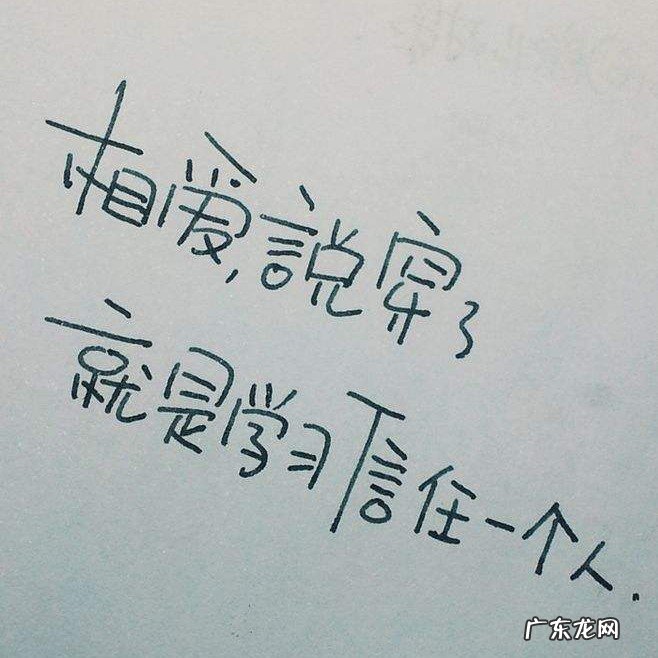 相爱,説穿了
就是学习信任一个人.
广东龙网